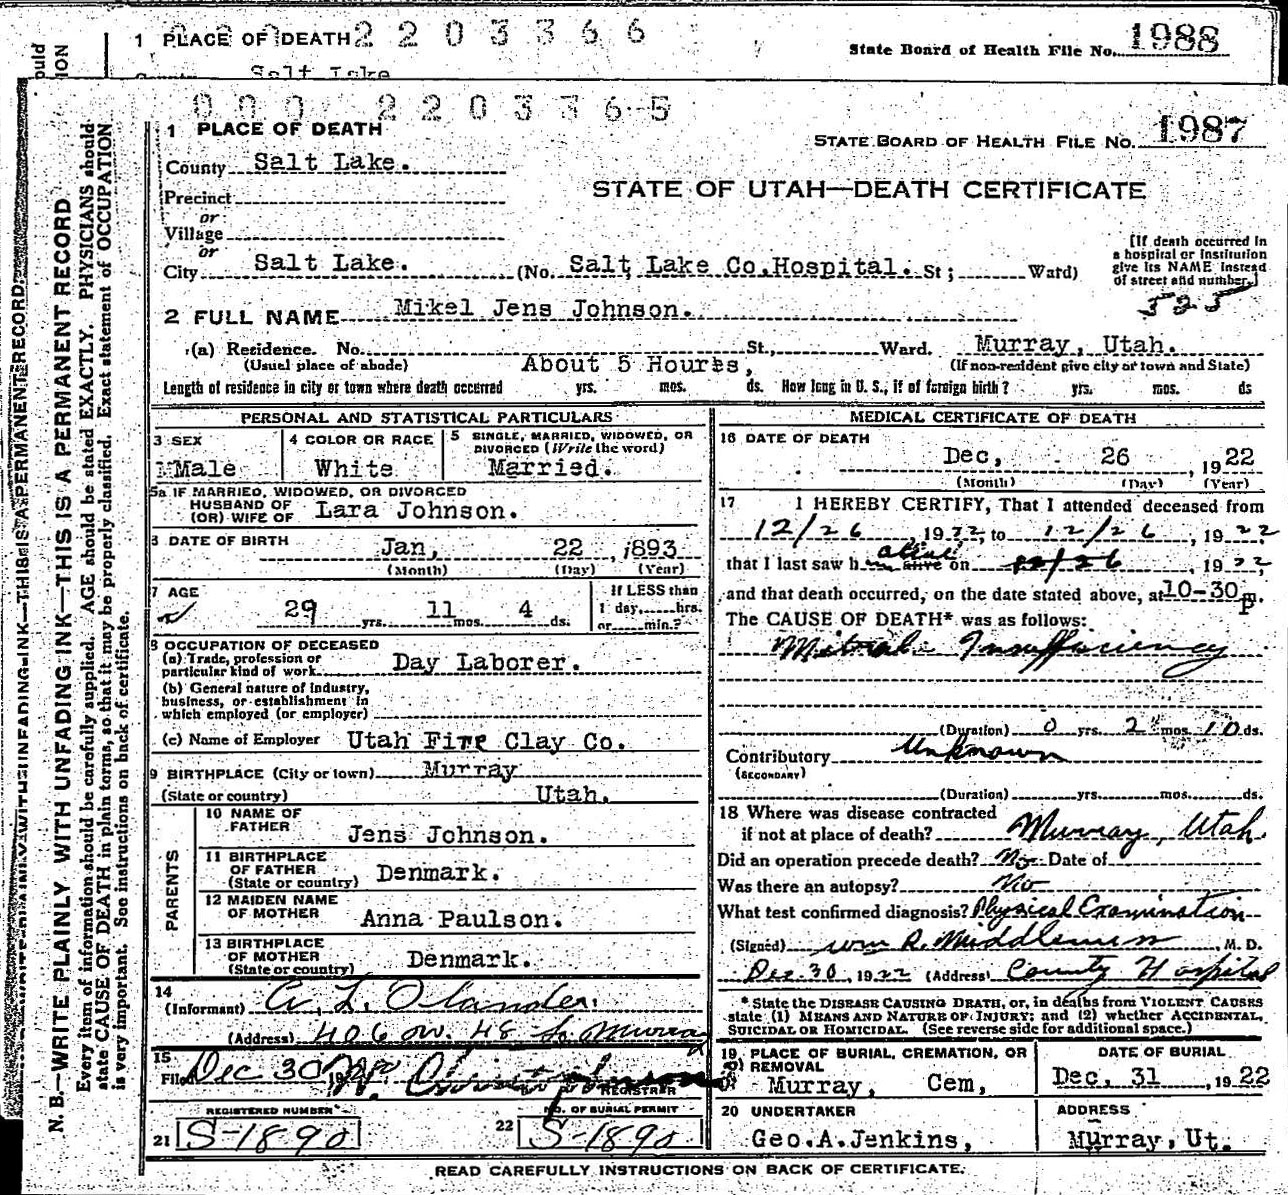 1 PLACE OF DEATH 2203366
State Board of Health File No. 1988
Salt Lake
000 2203365
1 PLACE OF DEATH
STATE BOARD OF HEALTH FILE NO. 1987
County Salt Lake.
STATE OF UTAH—DEATH CERTIFICATE
Precinct
or
Village
or
City Salt Lake. (No. Salt Lake Co.Hospital. St; Ward)
[If death occurred in
a hospital or institution
give its NAME instead
of street and number.]
525
2 FULL NAME Mikel Jens Johnson.
(a) Residence. No. St., Ward. Murray, Utah.
(Usual place of abode) About 5 Hours, (If non-resident give city or town and State)
Length of residence in city or town where death occurred yrs. mos. ds. How long in U. S., if of foreign birth? yrs. mos. ds
PERSONAL AND STATISTICAL PARTICULARS
3 SEX
Male
4 COLOR OR RACE
White
5 SINGLE, MARRIED, WIDOWED, OR
DIVORCED (Write the word)
Married.
5a IF MARRIED, WIDOWED, OR DIVORCED
HUSBAND OF
(OR) WIFE OF Lara Johnson.
6 DATE OF BIRTH Jan, 22, 1893
(Month) (Day) (Year)
7 AGE
29 yrs. 11 mos. 4 ds.
If LESS than
1 day, hrs.
or min.?
8 OCCUPATION OF DECEASED
(a) Trade, profession or
particular kind of work Day Laborer.
(b) General nature of industry,
business, or establishment in
which employed (or employer)
(c) Name of Employer Utah Fire Clay Co.
9 BIRTHPLACE (City or town) Murray
(State or country) Utah.
PARENTS
10 NAME OF
FATHER Jens Johnson.
11 BIRTHPLACE
OF FATHER
(State or country) Denmark.
12 MAIDEN NAME
OF MOTHER Anna Paulson.
13 BIRTHPLACE
OF MOTHER
(State or country) Denmark.
14
(Informant) A. L. Olander.
(Address) 406 W. 48 So Murray
15
Filed Dec 30
REGISTRAR
REGISTERED NUMBER
21 S-1890
NO. OF BURIAL PERMIT
22 S-1890
MEDICAL CERTIFICATE OF DEATH
16 DATE OF DEATH
Dec, 26, 1922
(Month) (Day) (Year)
17 I HEREBY CERTIFY, That I attended deceased from
12/26, 1922, to 12/26, 1922
that I last saw h alive alive on 12/26, 1922,
and that death occurred, on the date stated above, at 10-30 p m.
The CAUSE OF DEATH* was as follows:
Mitral Insufficiency
(Duration) 0 yrs. 2 mos. 10 ds.
Contributory Unknown
(SECONDARY)
(Duration) yrs. mos. ds.
18 Where was disease contracted
if not at place of death? Murray, Utah.
Did an operation precede death? No Date of
Was there an autopsy? No
What test confirmed diagnosis? Physical Examination
(Signed) Wm R. Middlemiss, M. D.
Dec 30, 1922 (Address) County Hospital
* State the DISEASE CAUSING DEATH, or, in deaths from VIOLENT CAUSES
state (1) MEANS AND NATURE OF INJURY; and (2) whether ACCIDENTAL,
SUICIDAL OR HOMICIDAL. (See reverse side for additional space.)
19 PLACE OF BURIAL, CREMATION, OR
REMOVAL
Murray, Cem,
DATE OF BURIAL
Dec, 31, 1922
20 UNDERTAKER
Geo.A.Jenkins,
ADDRESS
Murray, Ut.
READ CAREFULLY INSTRUCTIONS ON BACK OF CERTIFICATE.
N. B.—WRITE PLAINLY WITH UNFADING INK—THIS IS A PERMANENT RECORD
Every item of information should be carefully supplied. AGE should be stated EXACTLY. PHYSICIANS should
state CAUSE OF DEATH in plain terms, so that it may be properly classified. Exact statement of OCCUPATION
is very important. See instructions on back of certificate.